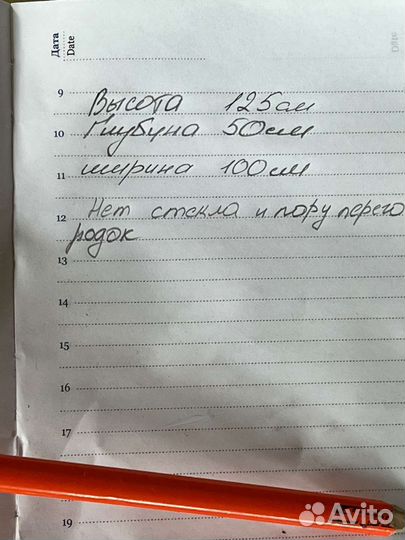 Дата
Date
Date
9
Высота 125см
10
Глубина 50см
11
ширина 100см
12
Нет стекла и пару перего
родок
13
14
15
16
17
19
Avito